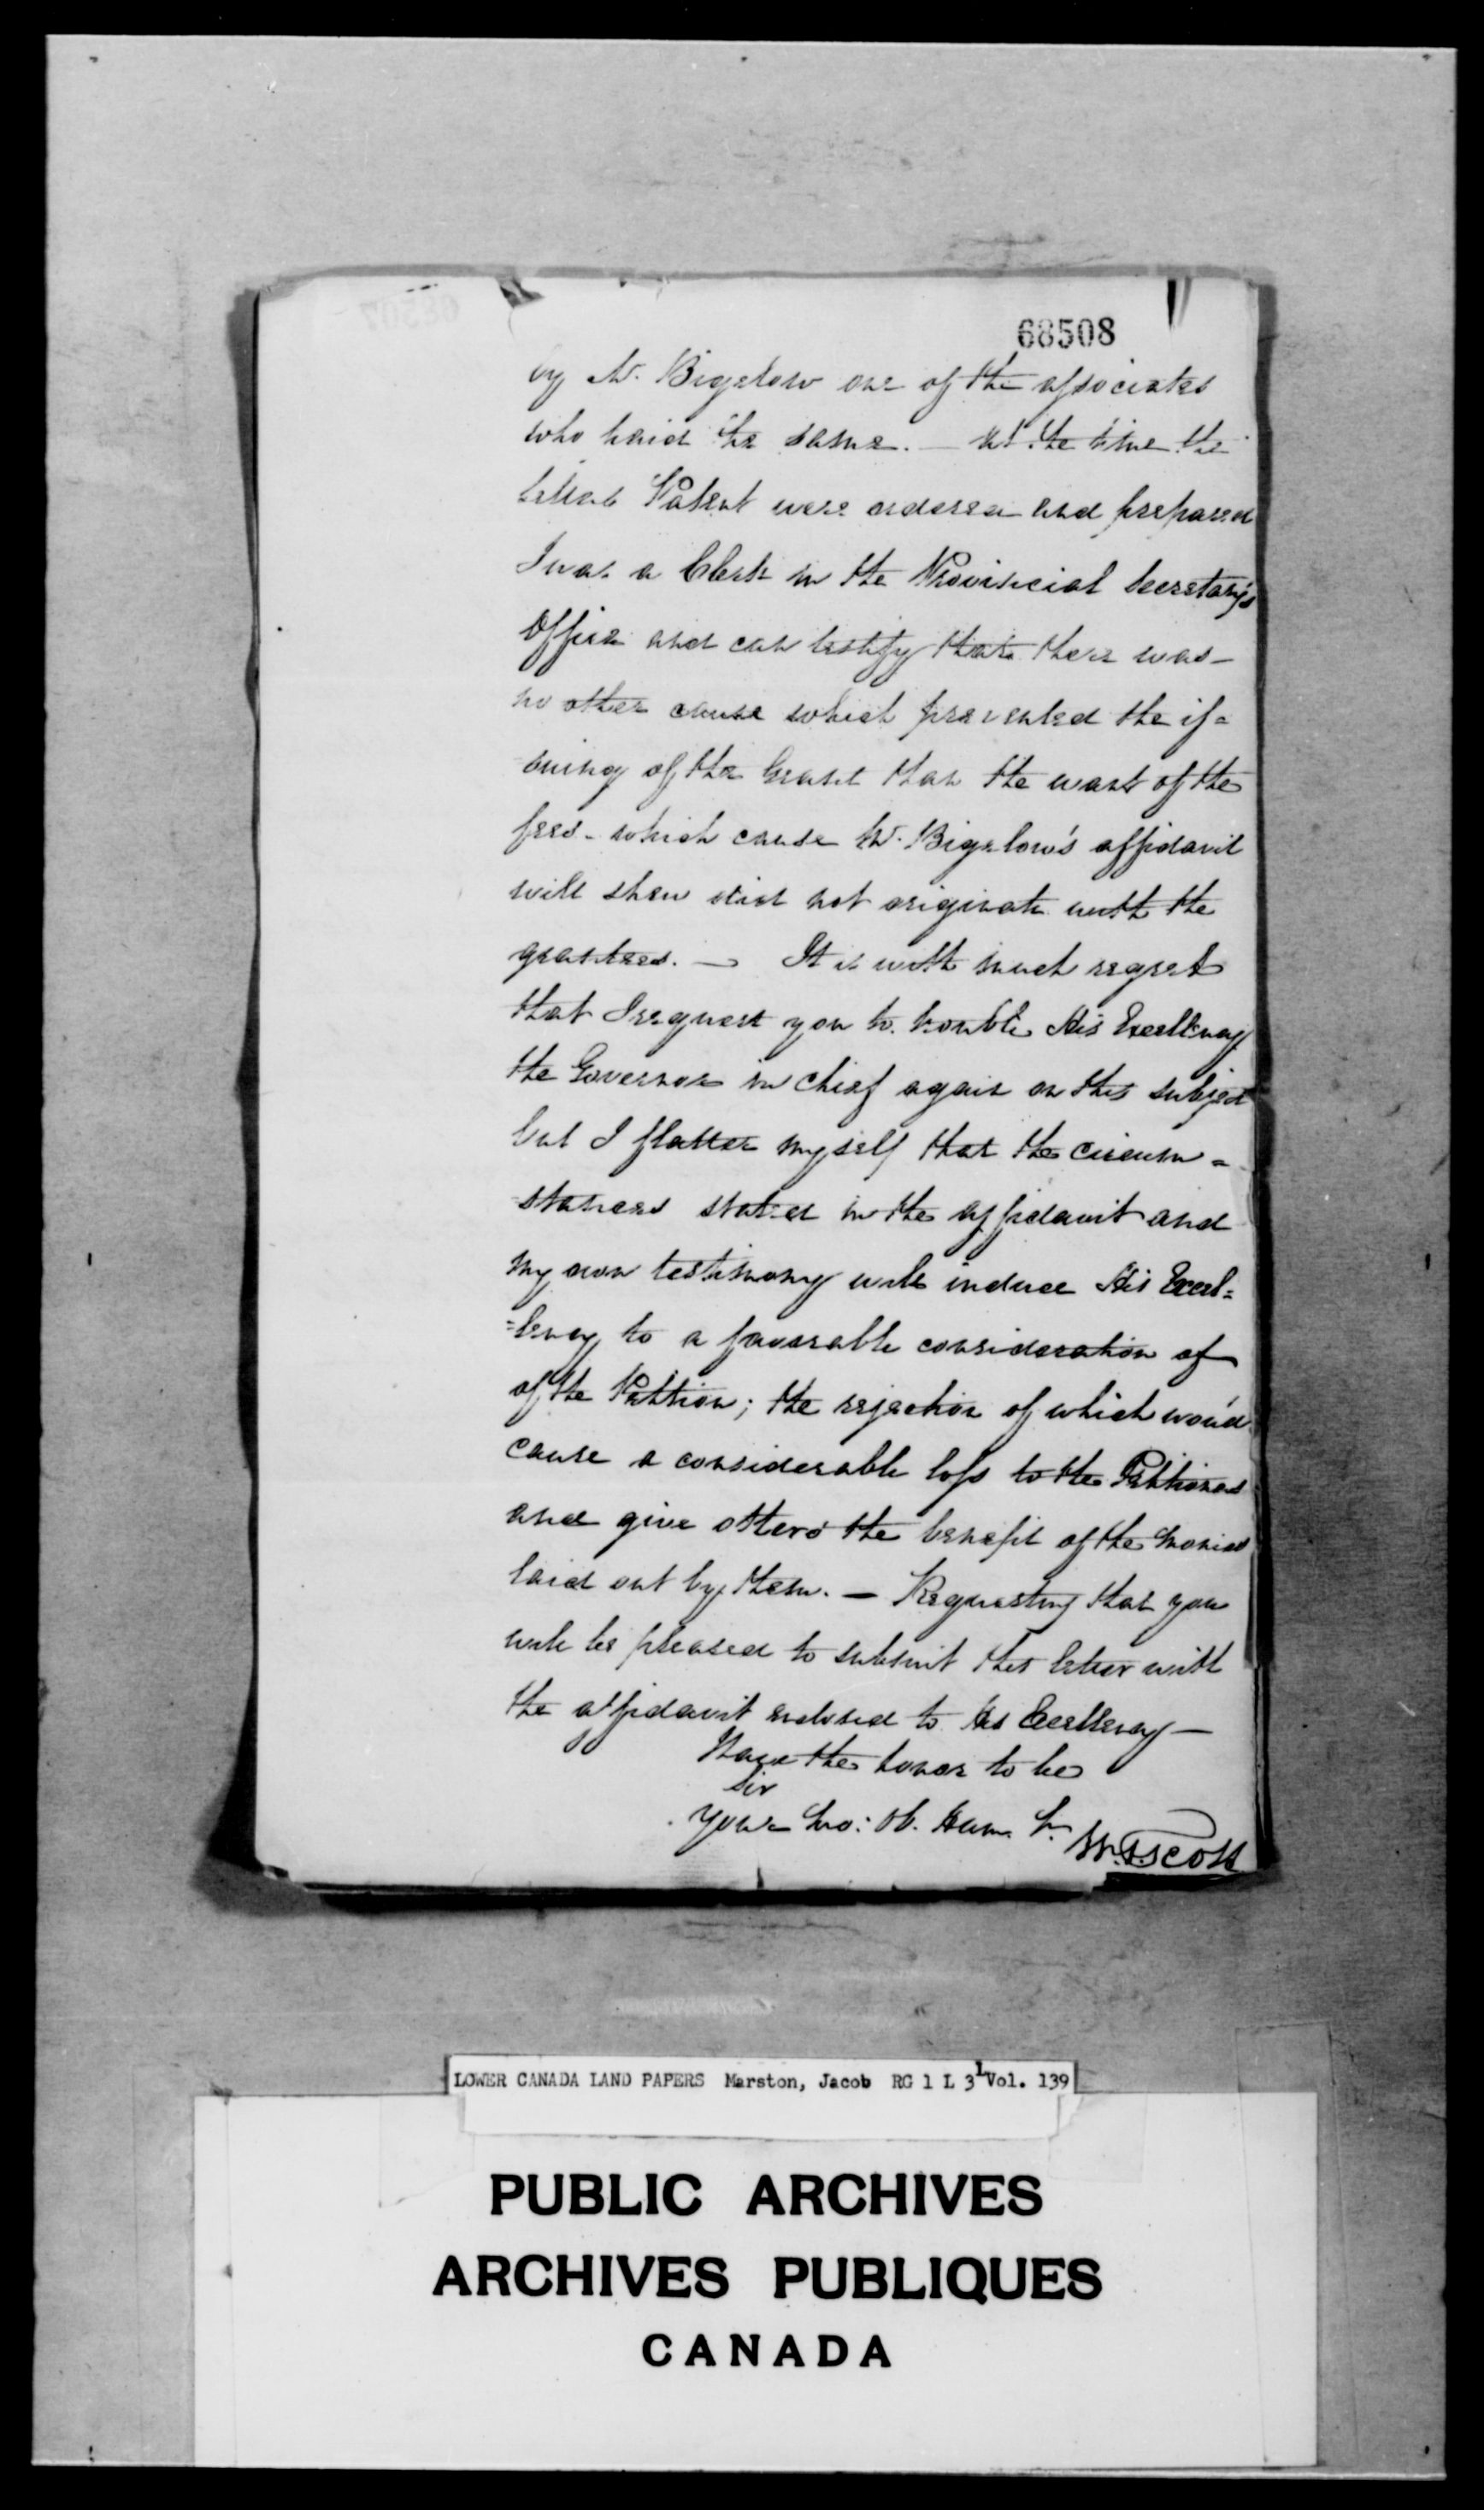 68508
by Mr. Bigelow one of the associates
who paid the same. — At the time the
letters Patent were ordered and prepared
I was a Clerk in the Provincial Secretary's
Office and can testify that there was
no other cause which prevented the is=
suing of the Grant than the want of the
fees - which cause Mr. Bigelow's affidavit
will shew did not originate with the
grantees. — It is with much regret
that I request you to trouble His Excellency
the Governor in Chief again on this subject
but I flatter myself that the circum=
stances stated in the affidavit and
my own testimony will induce His Excel=
=lency to a favorable consideration of
of the Petition; the rejection of which wou'd
cause a considerable loss to the Petitioners
and give others the benefit of the monies
laid out by them. — Requesting that you
will be pleased to submit this letter with
the affidavit enclosed to His Excellency —
Have the honor to be
Sir
Your Mo: Ob. Hum. Sr.
W. Scott
LOWER CANADA LAND PAPERS Marston, Jacob RG 1 L 3 L Vol. 139
PUBLIC ARCHIVES
ARCHIVES PUBLIQUES
CANADA